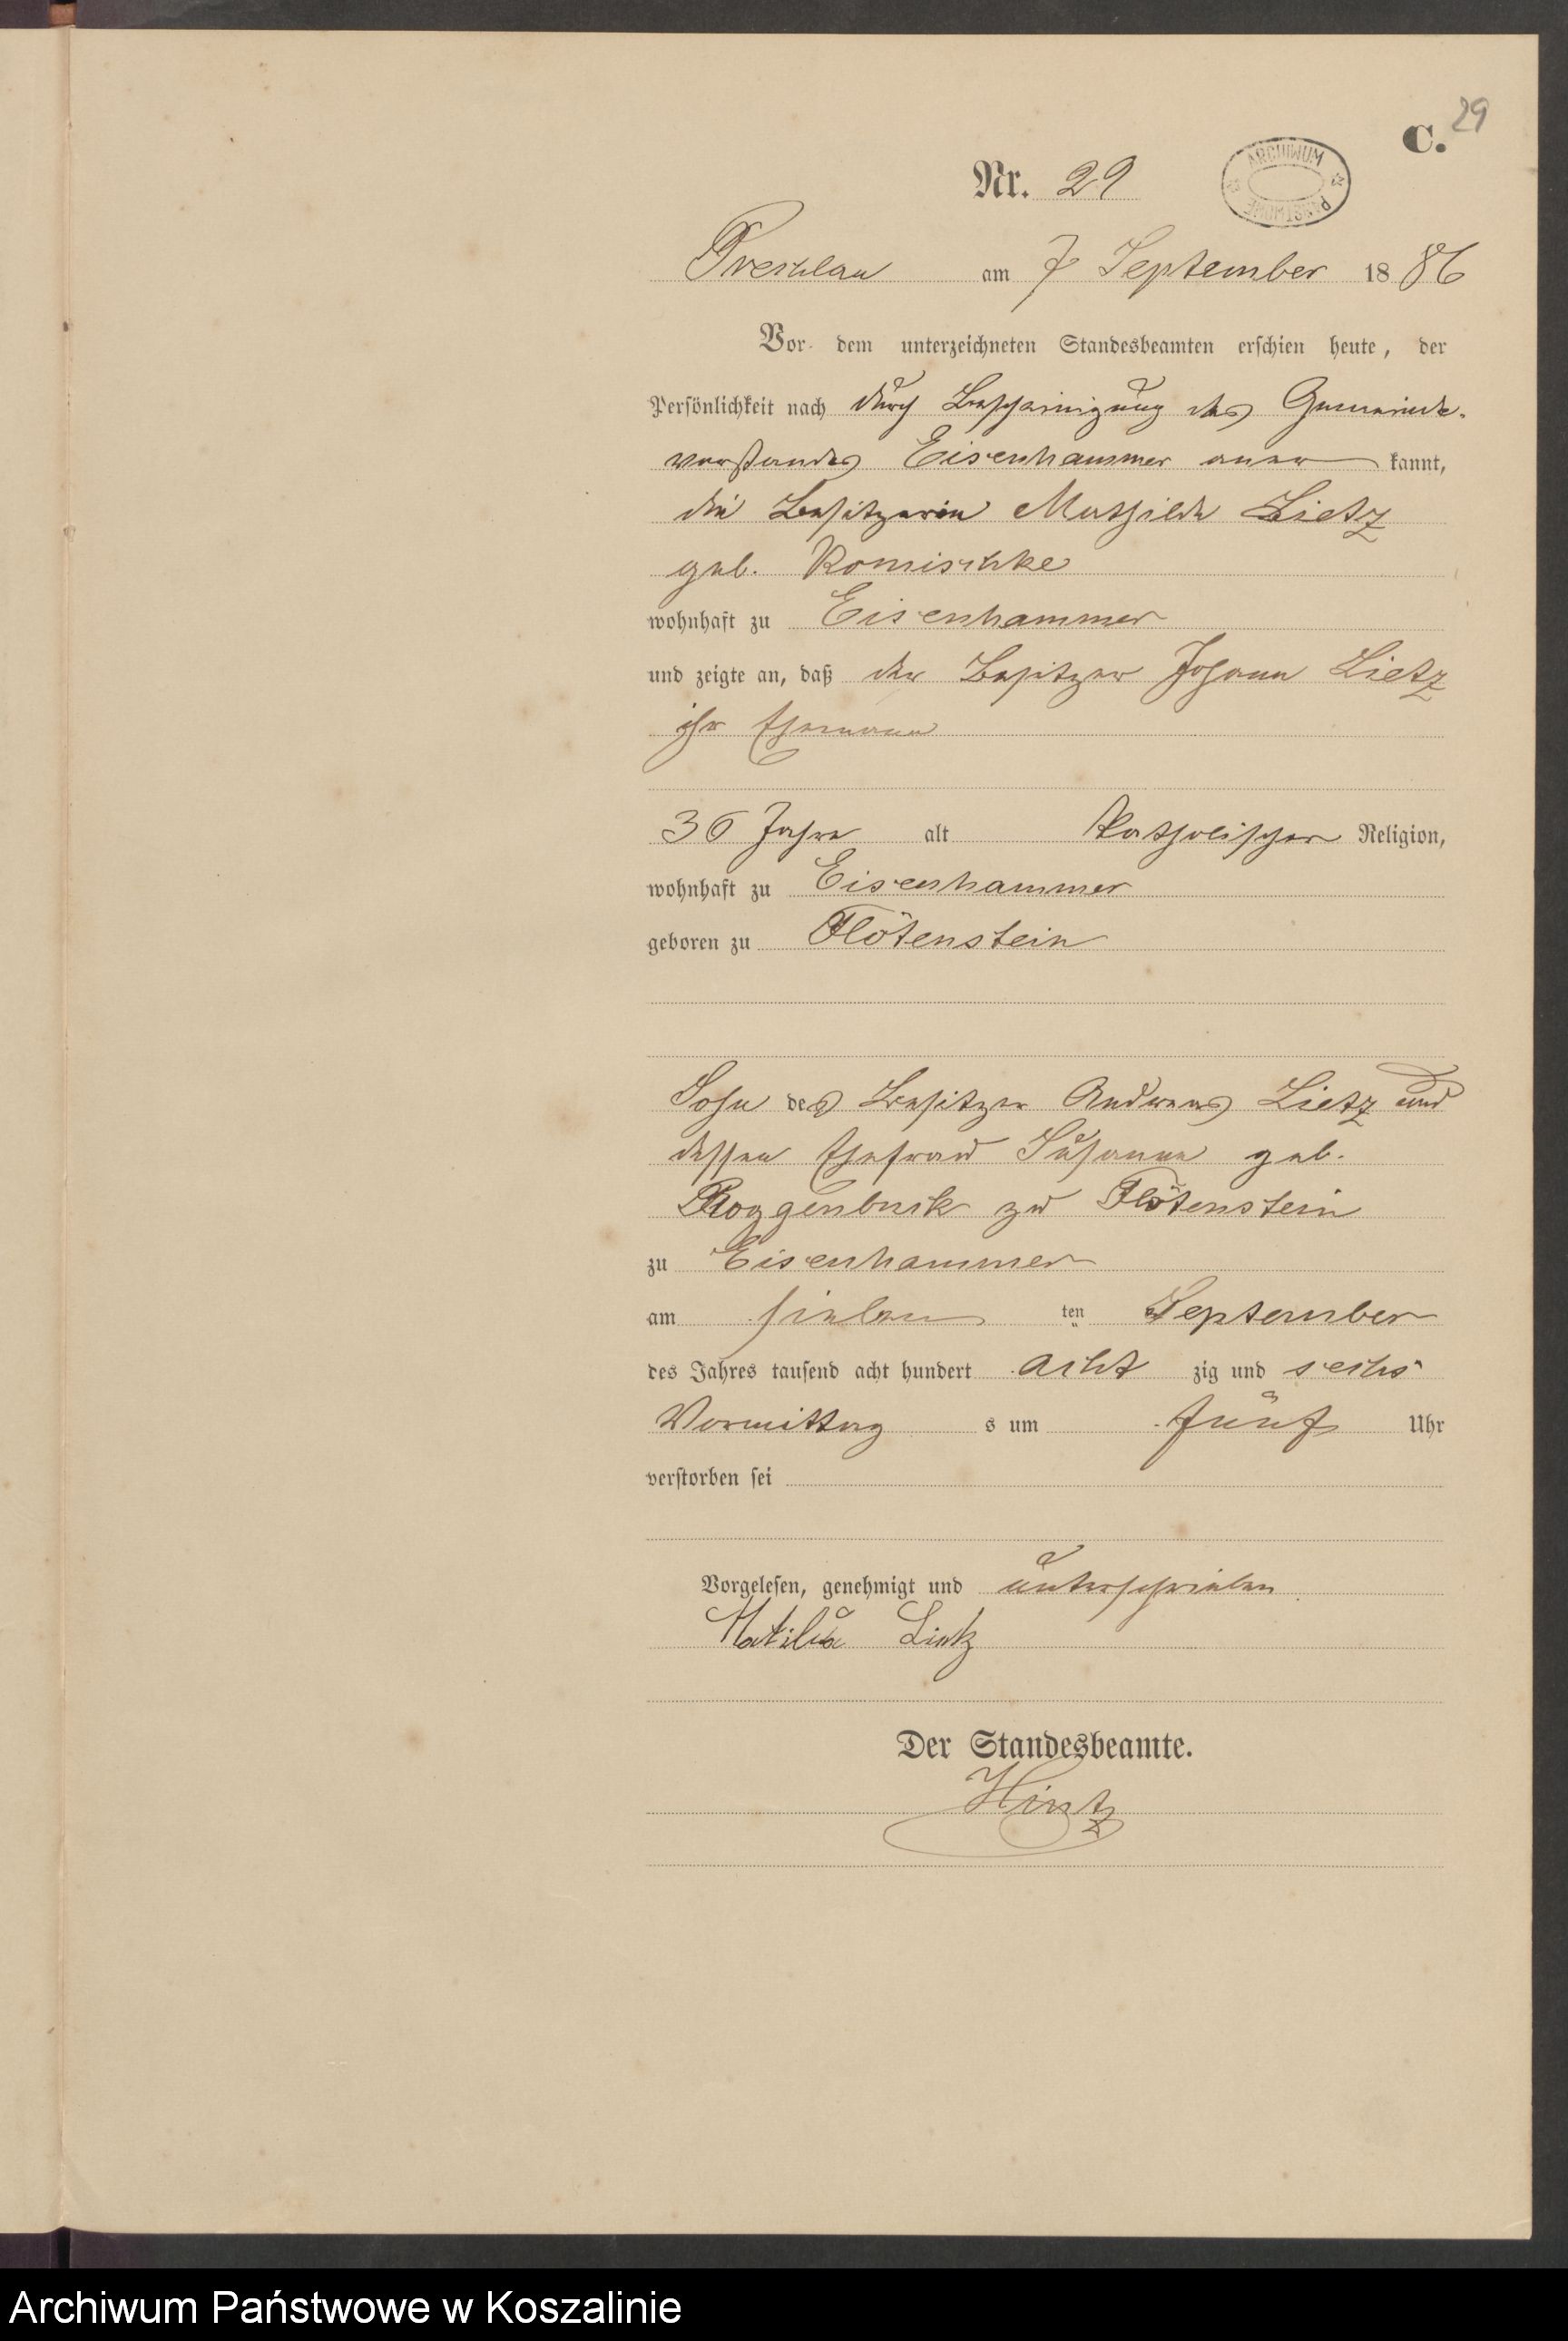 29
C.
Nr. 29
ARCHIWUM PAŃSTWOWE
Prechlau am 7 September 1886
Vor dem unterzeichneten Standesbeamten erschien heute, der
Persönlichkeit nach durch Bescheinigung des Gemeinde-
vorstandes Eisenhammer aner kannt,
die Besitzerin Mathilde Lietz
geb. Romischke
wohnhaft zu Eisenhammer
und zeigte an, daß der Besitzer Johann Lietz
ihr Ehemann
36 Jahre alt katholischer Religion,
wohnhaft zu Eisenhammer
geboren zu Flötenstein
Sohn des Besitzer Andreas Lietz und
dessen Ehefrau Susanna geb.
Roggenbuck zu Flötenstein
zu Eisenhammer
am sieben ten September
des Jahres tausend acht hundert acht zig und sechs
Vormittag s um fünf Uhr
verstorben sei
Vorgelesen, genehmigt und unterschrieben
Matilda Lietz
Der Standesbeamte.
Hintz
Archiwum Państwowe w Koszalinie